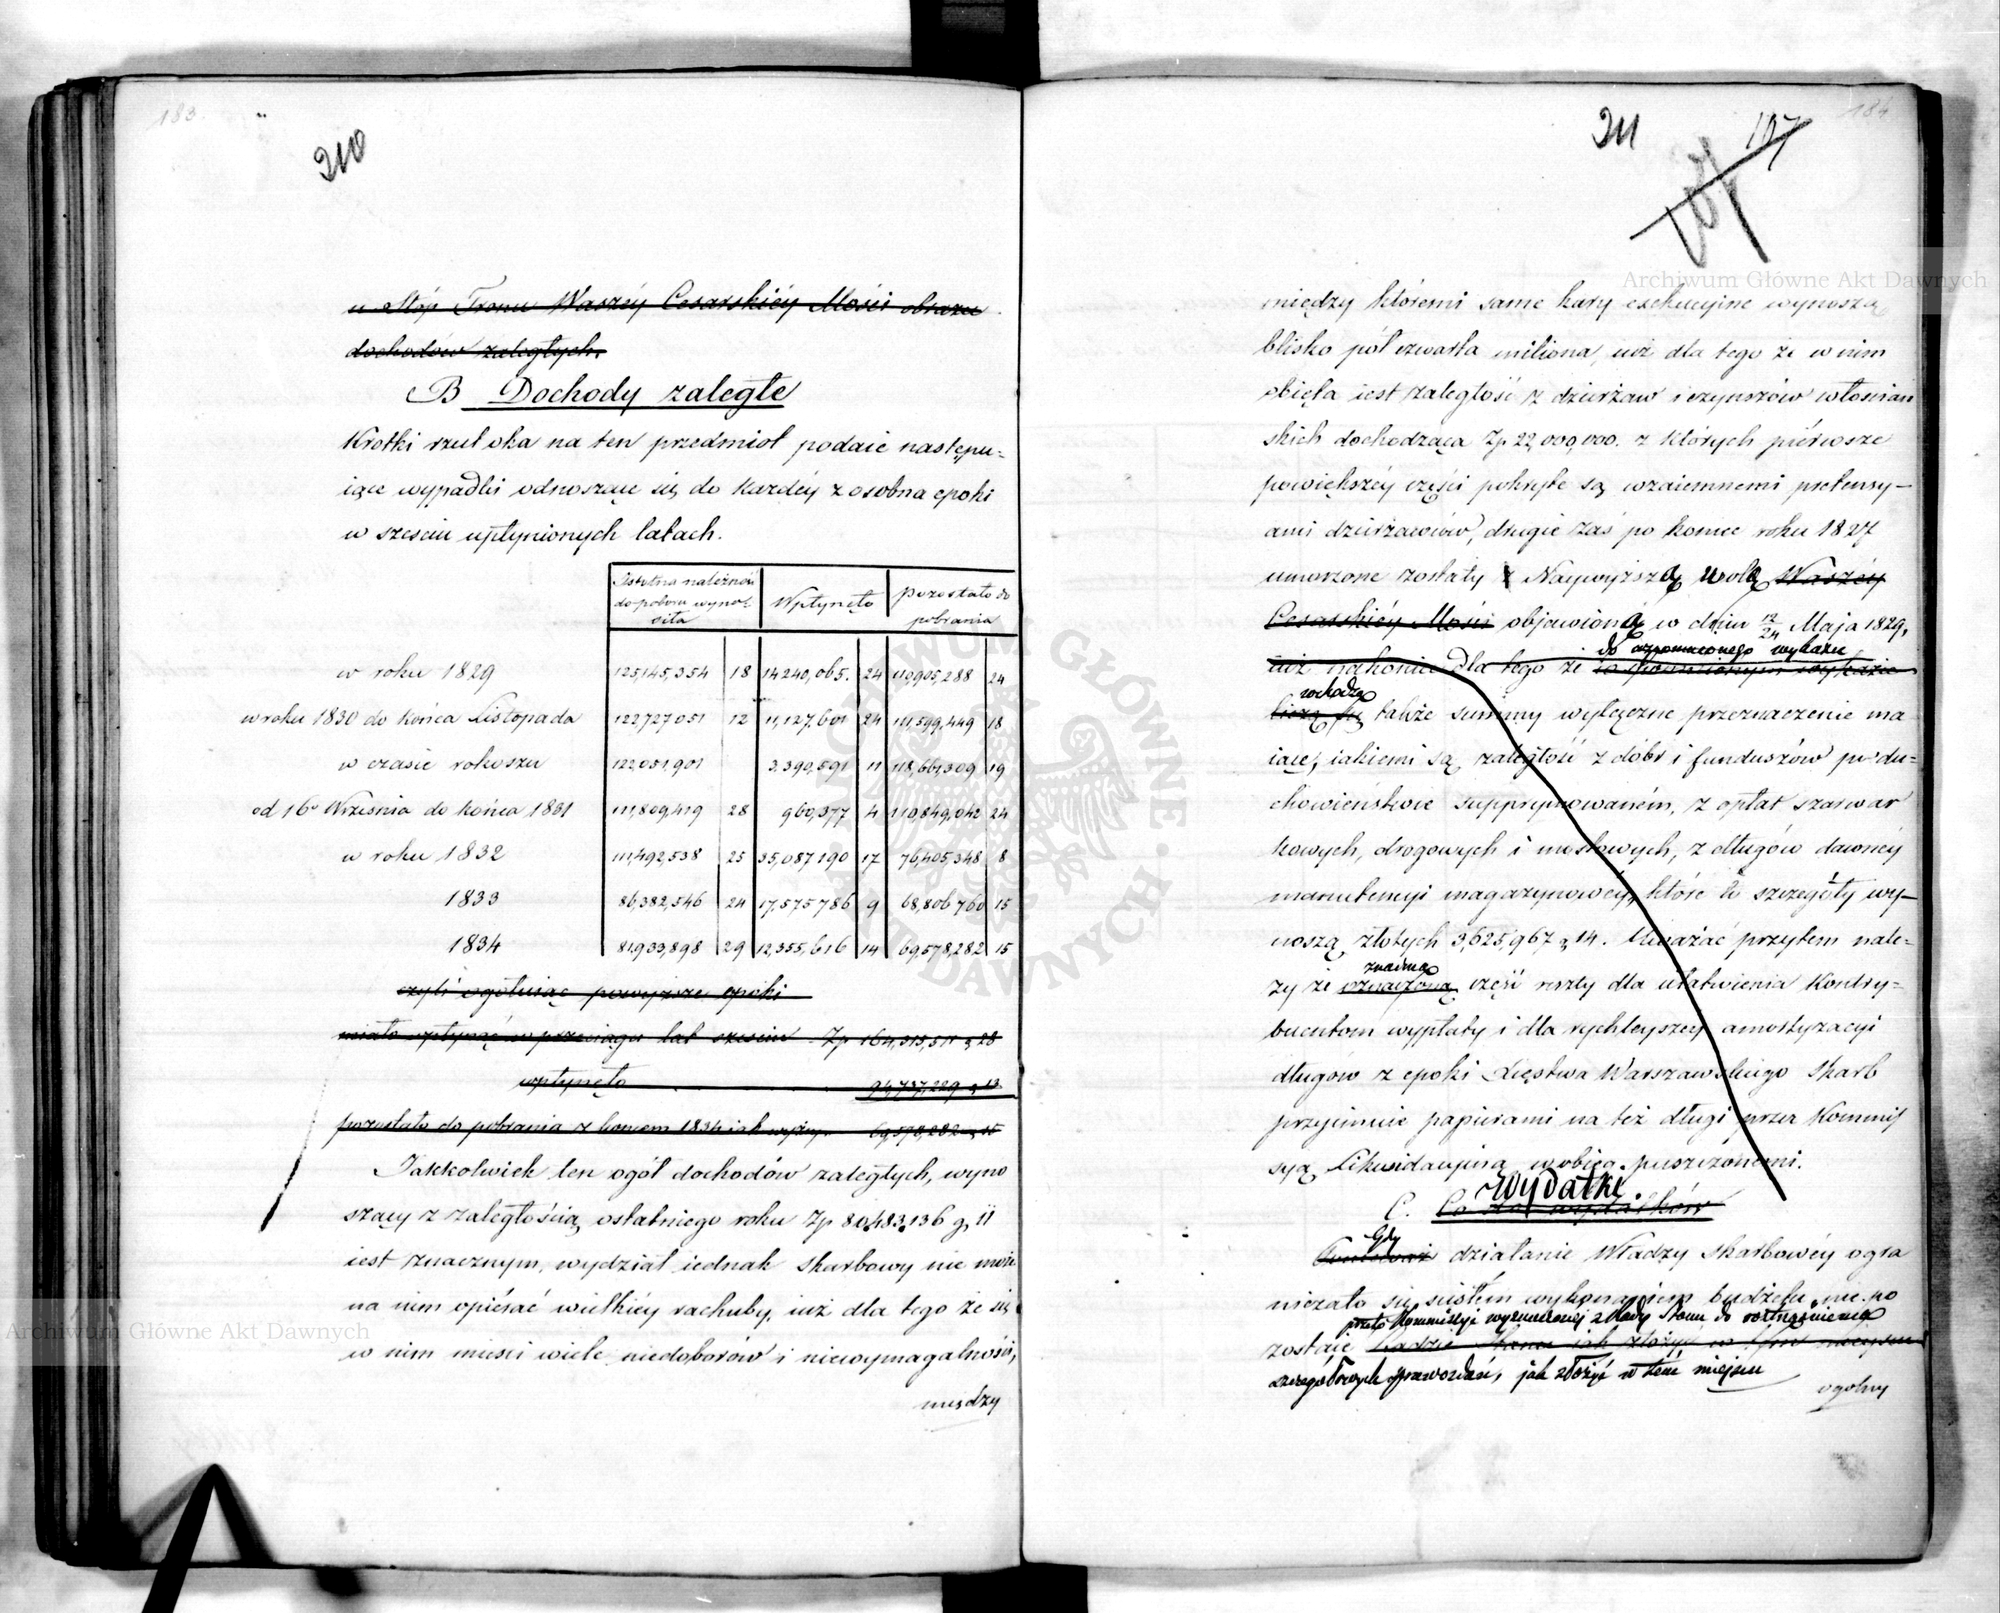 183.
210
u stóp Tronu Waszéy Cesarskiéy Mości obrazu
dochodów zaległych.
B Dochody zaległe
Krótki rzut oka na ten przedmiot podaie następu-
iące wypadki odnoszące się do każdéy z osobna epoki
w sześciu upłynionych latach.
Istotna należność do poboru wynosiła | Wpłynęło | Pozostało do pobrania
w roku 1829 125,145,354 18 14240,065. 24 110,905,288 24
w roku 1830 do końca Listopada 122,727,051 12 11,127,601 24 111,599,449 18
w czasie rokoszu 122,051,901 3,390,591 11 118,661,309 19
od 16º Września do końca 1831 111,809,419 28 960,377 4 110,849,042 24
w roku 1832 111,492,538 25 35,087,190 17 76,405,348 8
1833 86,382,546 24 17,575,786 9 68,806,760 15
1834 81,933,898 29 12,355,616 14 69,578,282 15
czyli ogółuiąc powyższe epoki
miało wpłynąć w przeciągu lat sześciu Zp 164,315,511 g 28
wpłynęło 94,737,229 g 13
pozostało do pobrania z końcem 1834 iak wyżey. 69,578,282 g 15
Jakkolwiek ten ogół dochodów zaległych, wyno
szący z zaległością ostatniego roku Zp 80,483,136 g. 11
iest znacznym, wydział iednak skarbowy nie może
na nim opiérać wielkiéy rachuby, iuż dla tego że się
w nim mieści wiele niedoborów i niewymagalności,
między
184
211
107
między któremi same kary exekucyine wynoszą
blisko pół czwarta miliona, iuż dla tego że w nim
obięta iest zaległość z dzierżaw i czynszów włościań
skich dochodząca Zp 22,000,000. z których piérwsze
powiększéy części pokryte są wzaiemnemi pretensy-
ami dzierżawców, drugie zaś po koniec roku 1827
umorzone zostały z Naywyższą wolą Waszéy
Cesarskiéy Mości objawioną w dniu 12/24 Maja 1829,
do wspomnionego wykazu
iuż nakoniec dla tego że w spomnionym wykazie
wchodzą
liczą się także summy wyłączne przeznaczenie ma
iące, iakiemi są zaległość z dóbr i funduszów po du-
chowieństwie supprymowaném, z opłat szarwar
kowych, drogowych i mostowych, z długów dawnéy
manutencyi magazynowéy, które to szczegóły wy-
noszą złotych 3,625,967 g 14. Uważać przytem nale-
znaczną
ży że oznaczoną część reszty dla ułatwienia Kontry-
buentom wypłaty i dla rychleyszey amortyzacyi
długów z epoki Xięstwa Warszawskiego Skarb
przyimuie papierami na też długi przez Kommis
syą Likwidacyiną w obieg puszczonemi.
Wydatki.
C. Co do wydatków
Gdy
Ponieważ działanie Władzy Skarbowéy ogra
niczało się ścisłem wykonaniem budżetu, nie po
przeto Kommissyi wyznaczonej z Rady Stanu do roztrząśnienia
zostaie Radzie Stanu iak złożyć w tém mieyscu
szczegółowych sprawozdań, jak złożyć w tém miejscu
ogólny
Archiwum Główne Akt Dawnych
Archiwum Główne Akt Dawnych
ARCHIWUM GŁÓWNE AKT DAWNYCH